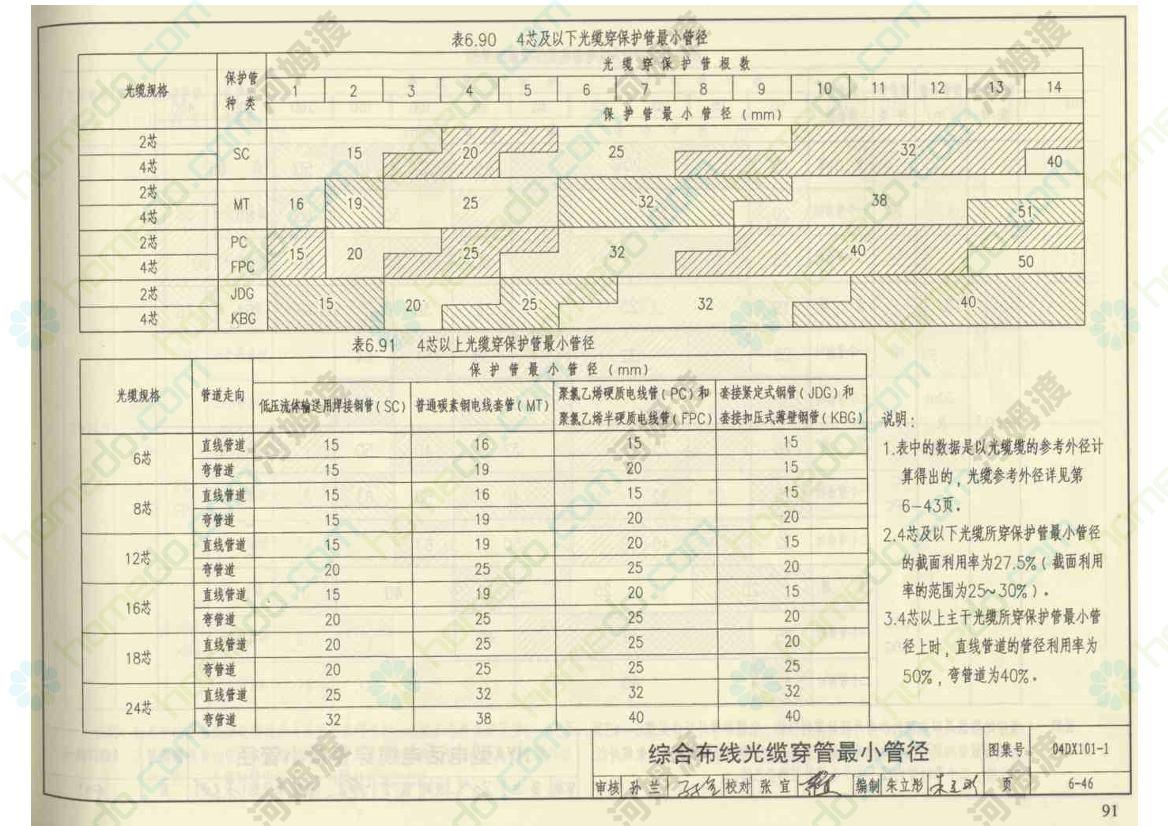 表6.90 4芯及以下光缆穿保护管最小管径
光缆规格 保护管种类 光缆穿保护管根数
1 2 3 4 5 6 7 8 9 10 11 12 13 14
保护管最小管径(mm)
2芯 4芯 SC 15 20 25 32 40
2芯 4芯 MT 16 19 25 32 38 51
2芯 4芯 PC FPC 15 20 25 32 40 50
2芯 4芯 JDG KBG 15 20 25 32 40
表6.91 4芯以上光缆穿保护管最小管径
光缆规格 管道走向 保护管最小管径(mm)
低压流体输送用焊接钢管(SC) 普通碳素钢电线套管(MT) 聚氯乙烯硬质电线管(PC)和聚氯乙烯半硬质电线管(FPC) 套接紧定式钢管(JDG)和套接扣压式薄壁钢管(KBG)
6芯 直线管道 15 16 15 15
弯管道 15 19 20 15
8芯 直线管道 15 16 15 15
弯管道 15 19 20 20
12芯 直线管道 15 19 20 15
弯管道 20 25 25 20
16芯 直线管道 15 19 20 15
弯管道 20 25 25 20
18芯 直线管道 20 25 25 20
弯管道 20 25 25 25
24芯 直线管道 25 32 32 32
弯管道 32 38 40 40
说明:
1.表中的数据是以光缆缆的参考外径计
算得出的,光缆参考外径详见第
6-43页。
2.4芯及以下光缆所穿保护管最小管径
的截面利用率为27.5%(截面利用
率的范围为25~30%)。
3.4芯以上主干光缆所穿保护管最小管
径上时,直线管道的管径利用率为
50%,弯管道为40%。
综合布线光缆穿管最小管径 图集号 04DX101-1
审核 孙兰 校对 张宜 编制 朱立彤 页 6-46
91
河姆渡
homedo.com